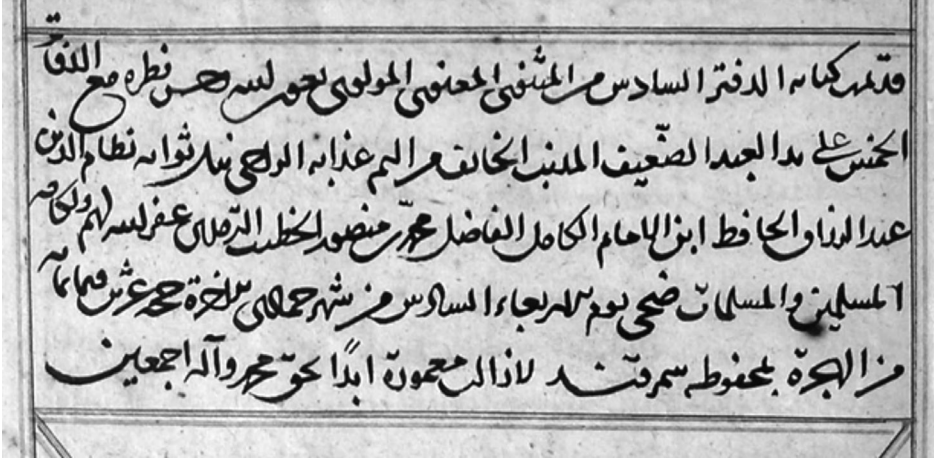 قد تمت كتابه الدفتر السادس من المثنوى المعنوى المولوى بعون الله وحسن نظره مع الدفاتر
الخمس على يد العبد الضعيف المذنب الخائف من اليم عذابه الراجى نيل ثوابه نظام الدين
عبد الرزاق الحافظ ابن الامام الكامل الفاضل محمد بن منصور الخطيب غفر الله لهم ولكافه
المسلمين والمسلمات ضحى يوم الاربعاء السادس من شهر جمادى الاخرة حجه عشر وثمانمائه
من الهجرة بمحفوظه سمرقند لا زالت معمورة ابدًا بحق محمد وآله اجمعين